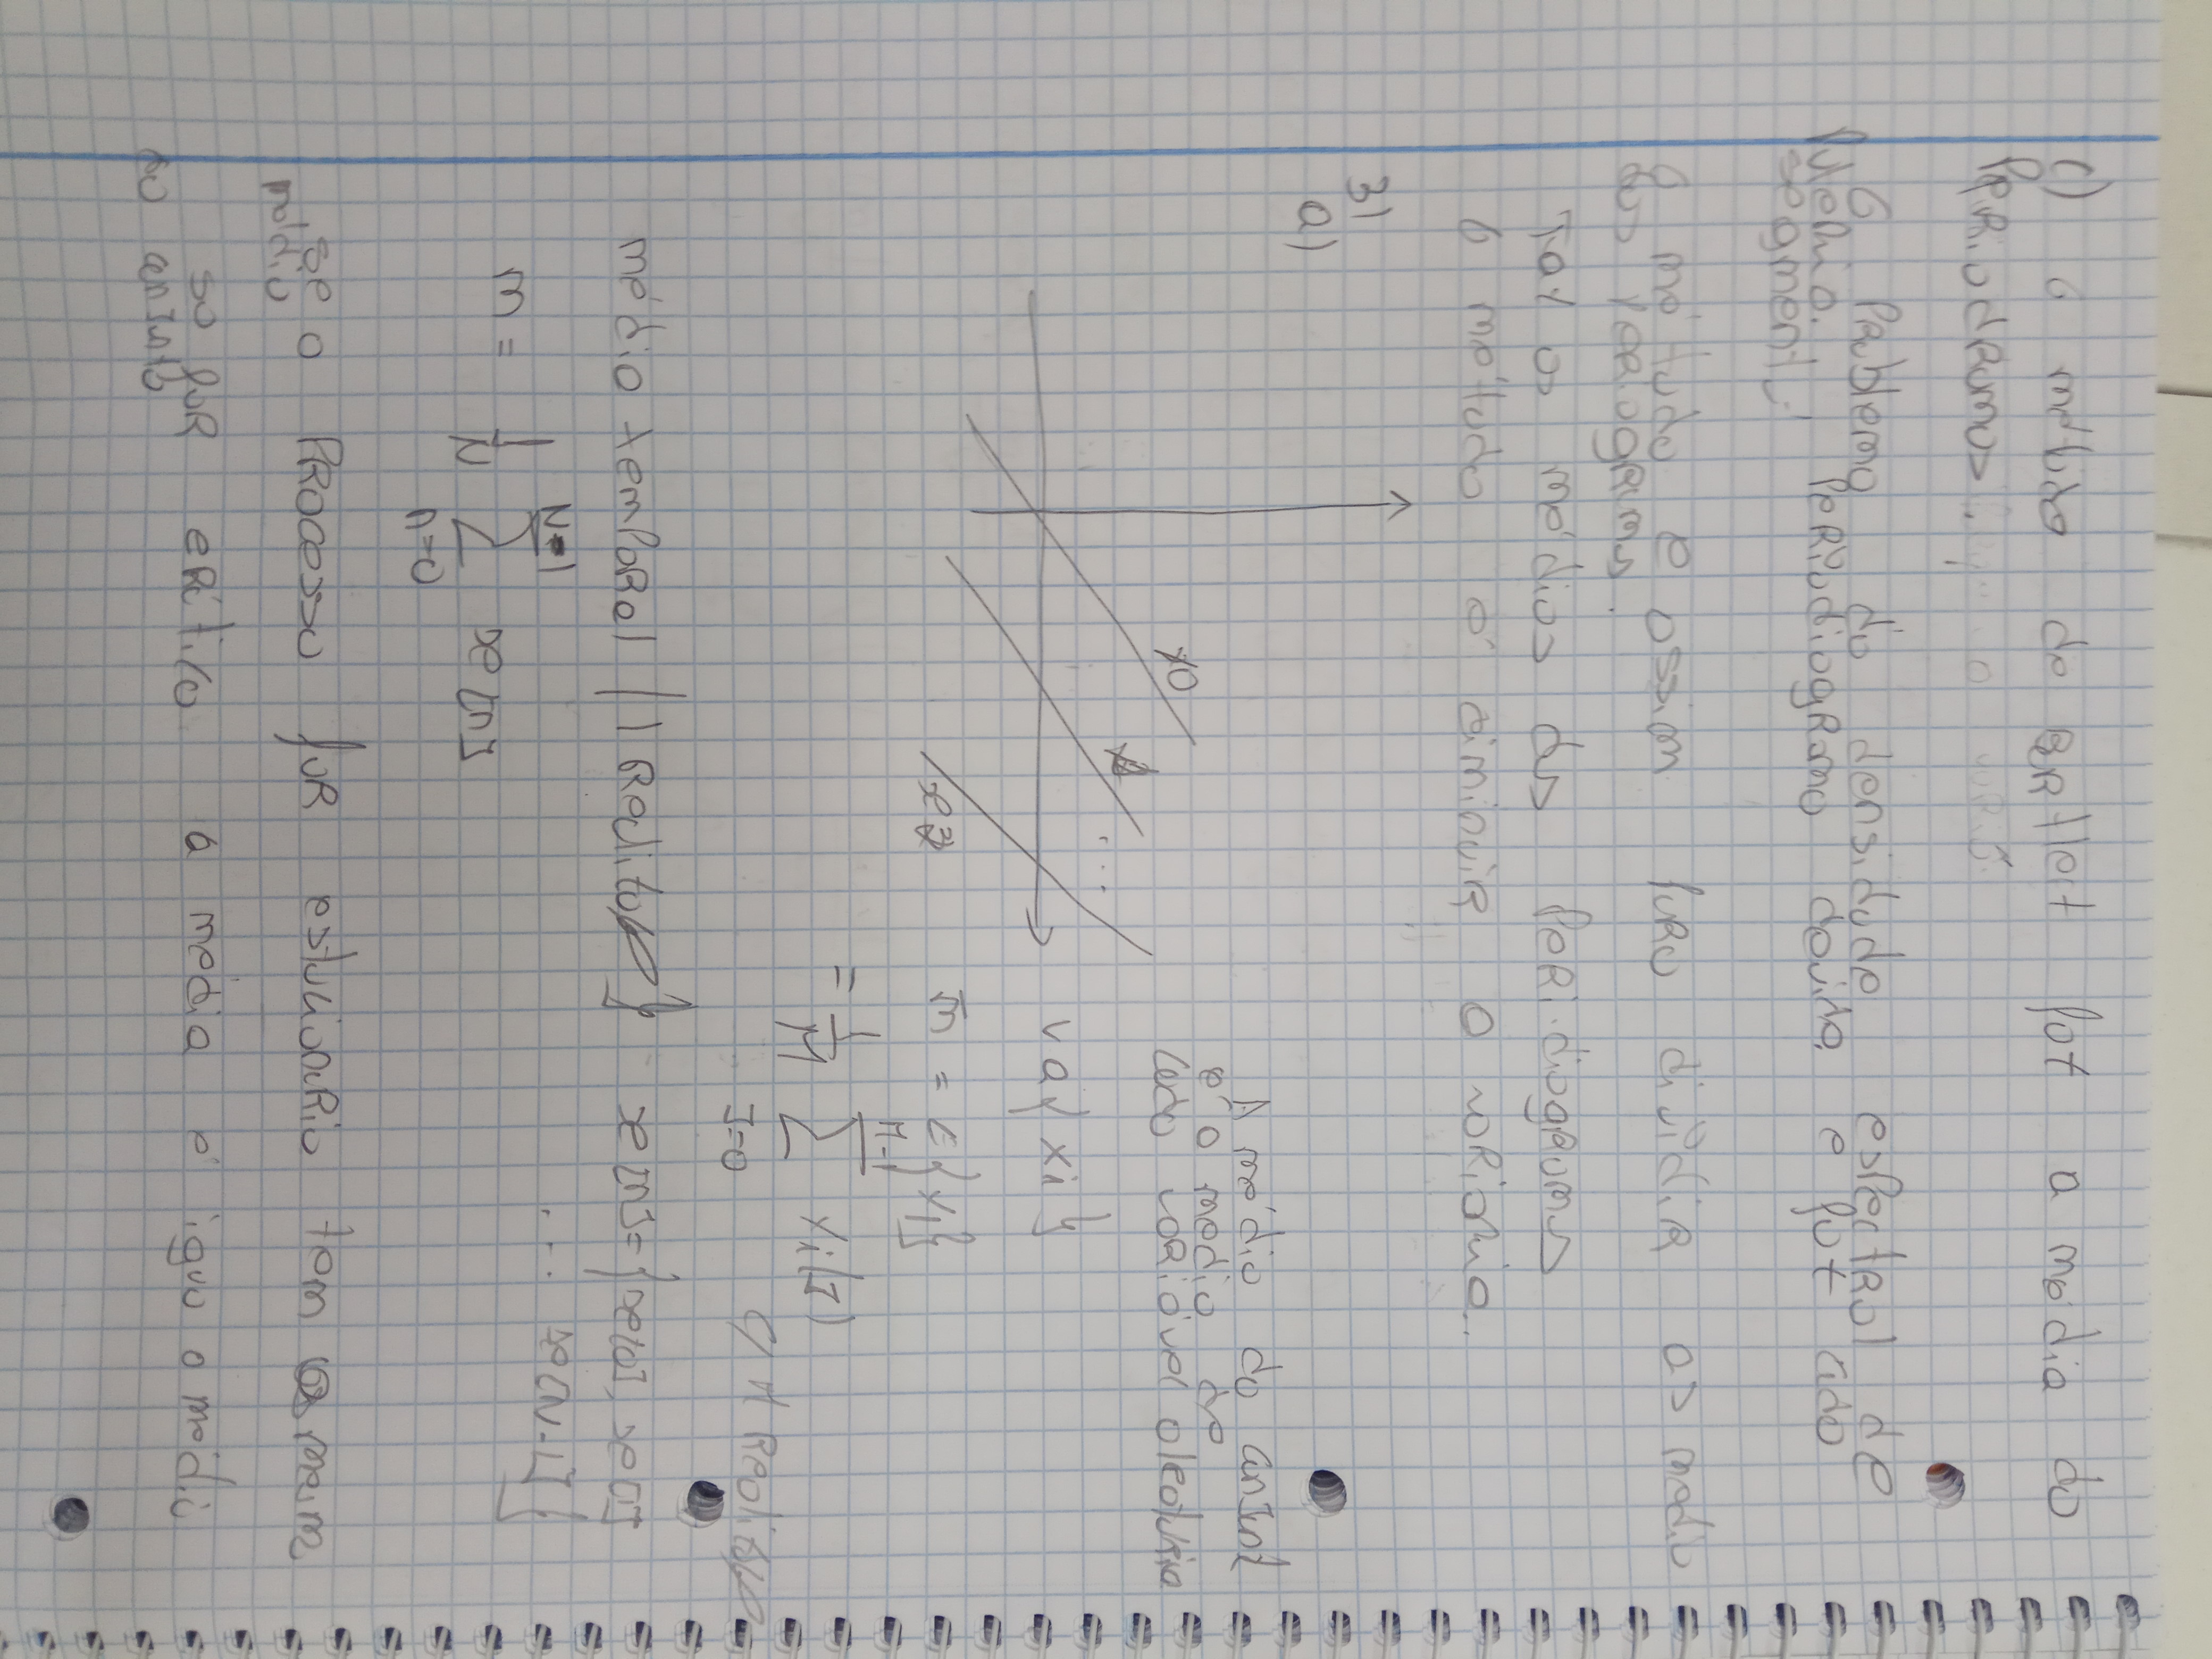 c) o método de Bartlett faz a média do
Periodramos.
O Problema da densidade espectral de
Potencia. Periodiograma devide e faz cado
segmento
o método e assim para dividir as medio
dos periogramas.
Faz as médias das Peridiogramas
O método é diminuir a variancia.
3)
a)
x0
...
A média do conjunt
e' a media de
cada variável aleatória
va{xi}
m̄ = E{xi}
= 1/M M-1 ∑ J=0 xi(J)
c/ M
média temporal (1
x[n]={x[0], x[1]
... x[N-1]}
m = 1/N N-1 ∑ n=0 x[n]
se o PROCESSO for estacionario tem mesm
média
so for erótico a média é igua a médi
do conjunto